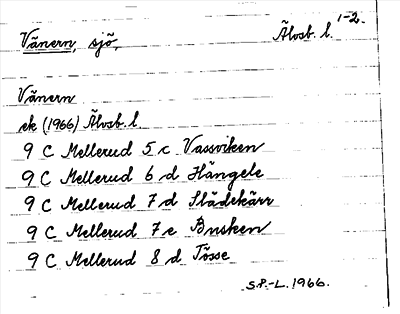 Vänern, sjö, Älvsb. l. 1-2.
Vänern
ek (1966) Älvsb. l.
9 C Mellerud 5 c Vassviken
9 C Mellerud 6 d Hängele
9 C Mellerud 7 d Slädekärr
9 C Mellerud 7 e Bnsken
9 C Mellerud 8 d Tösse
S.P.-L. 1966.